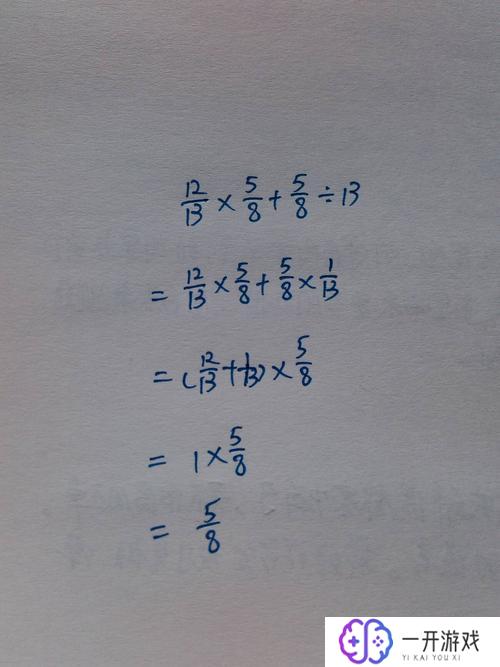 12/13 × 5/8 + 5/8 ÷ 13
= 12/13 × 5/8 + 5/8 × 1/13
= (12/13 + 1/13) × 5/8
= 1 × 5/8
= 5/8
一开游戏
YI KAI YOU XI